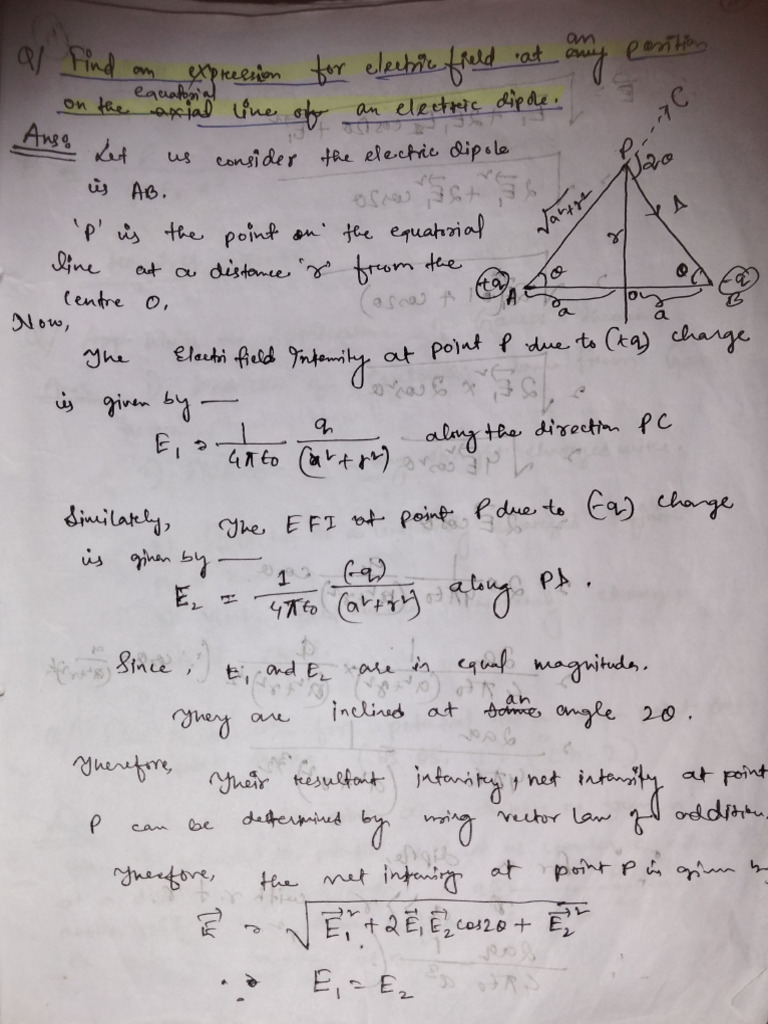 Q/ Find an expression for electric field at an any position
on the equatorial axial line of an electric dipole.
Ans: Let us consider the electric dipole
is AB.
'P' is the point on the equatorial
line at a distance 'r' from the
centre O.
C
P 2θ
√a²+r²
r
θ θ
(+q) A a O a B (-q)
Now,
The Electri field Intensity at point P due to (+q) charge
is given by —
E₁ = 1/4πε₀ q/(a²+r²) along the direction PC
Similarly, The EFI at point P due to (-q) charge
is given by —
E₂ = 1/4πε₀ (-q)/(a²+r²) along PD.
Since, E₁ and E₂ are in equal magnitudes.
They are inclined at same an angle 2θ.
Therefore, Their resultant intensity, net intensity at point
P can be determined by using vector law of addition.
Therefore, the net intensity at point P is given by
E⃗ = √E⃗₁² + 2E⃗₁E⃗₂cos2θ + E⃗₂²
E₁ = E₂